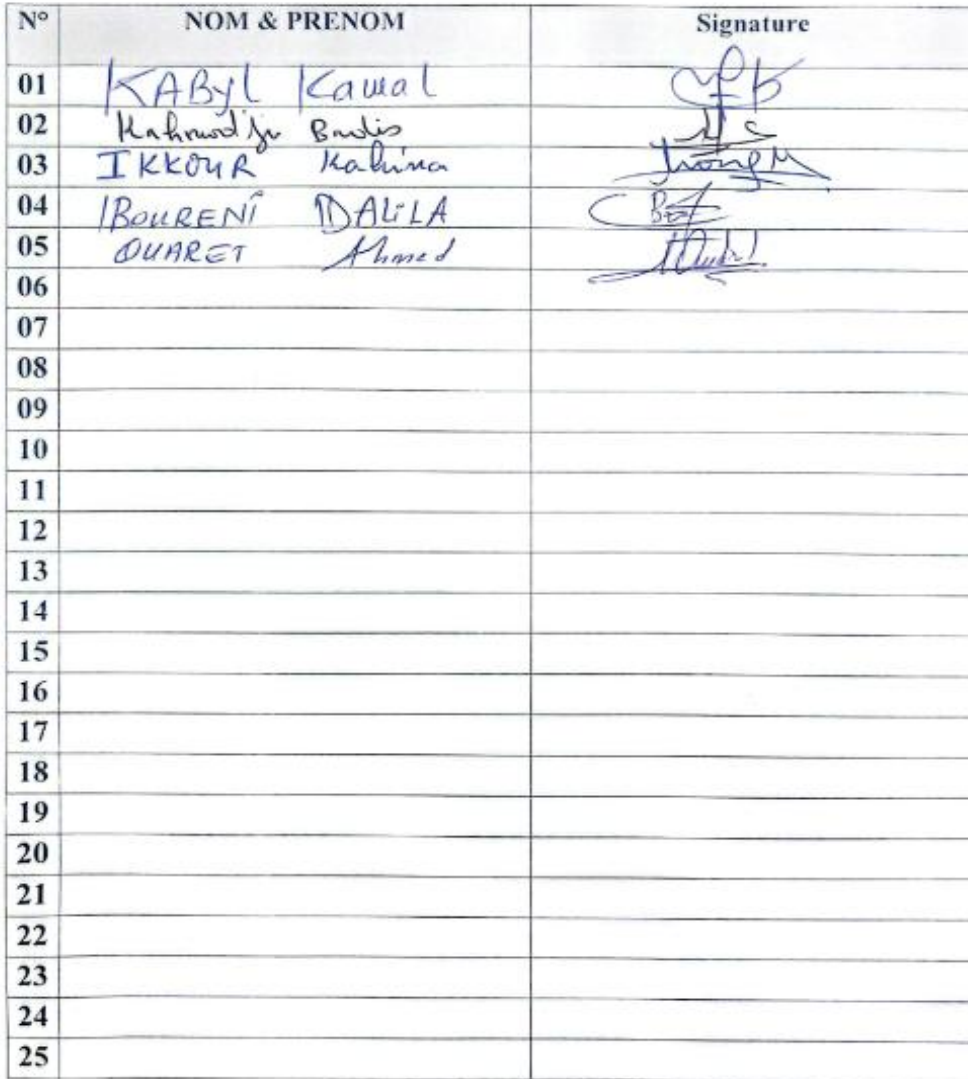 N° NOM & PRENOM Signature
01 KAByL Kamal
02 Badis
03 IKKOUR Kahina
04 IBOURENÎ DALiLA
05 OUARET Ahmed
06
07
08
09
10
11
12
13
14
15
16
17
18
19
20
21
22
23
24
25